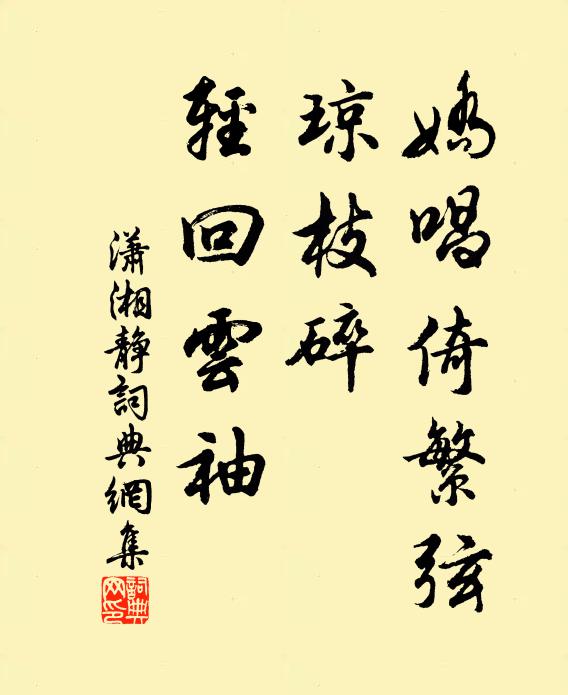 嬌唱倚繁弦
琼枝碎
輕回雲袖
瀟湘靜詞典網集
詞典网印